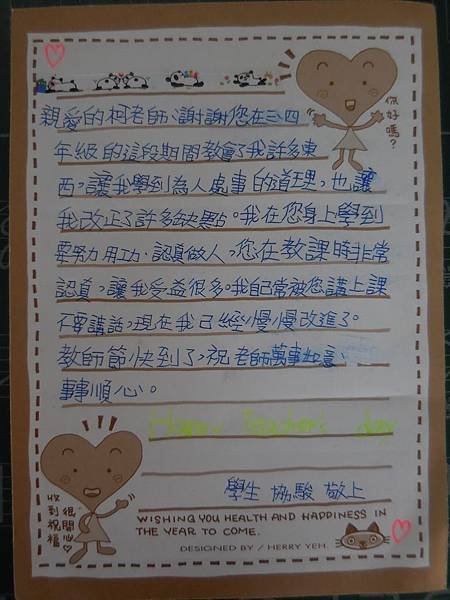 你好嗎?
親愛的柯老師:謝謝您在三、四
年級的這段期間教會了我許多東
西,讓我學到為人處事的道理,也讓
我改正了許多缺點。我在您身上學到
要努力用功、認真做人,您在教課時非常
認真,讓我受益很多。我自己常被您講上課
不要講話,現在我已經慢慢改進了。
教師節快到了,祝老師萬事如意、
事事順心。
Happy Teacher's day
學生 協駿 敬上
收到祝福
很開心
WISHING YOU HEALTH AND HAPPINESS IN
THE YEAR TO COME.
DESIGNED BY / HERRY YEH.